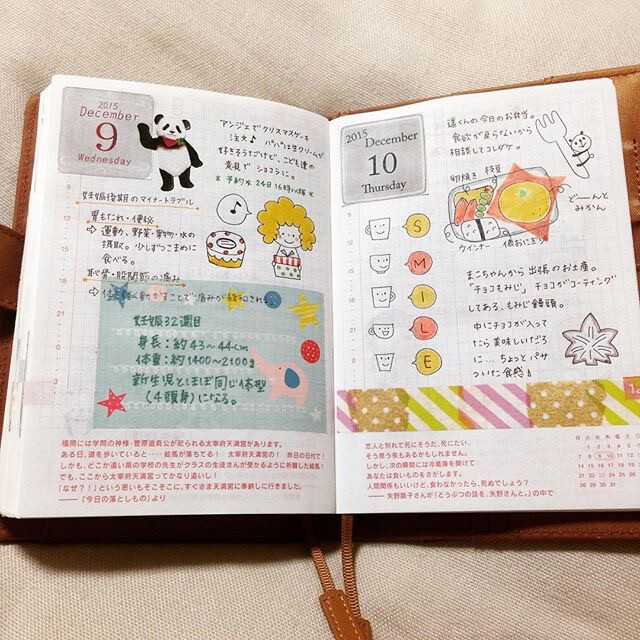 2015
December
9
Wednesday
アンジェでクリスマスケーキ
注文♪ パパは生クリームが
好きそうだけど、こども達の
意見で ショコラに。
*予約* 24日16時以降*
妊娠後期のマイナートラブル
胃もたれ・便秘
⇨ 運動、野菜・果物・水の
摂取。少しずつこまめに
食べる。
恥骨・股関節の痛み
妊娠32週目
身長：約43〜44cm
体重：約1400〜2100g
新生児とほぼ同じ体型
(4頭身)になる。
福岡には学問の神様・菅原道真公が祀られる太宰府天満宮があります。
ある日、道を歩いていると……絵馬が落ちてる！ 太宰府天満宮の！ 昨日の日付で！
しかも、どこか遠い県の学校の先生がクラスの生徒さんが受かるように祈願した絵馬！
でも、ここから太宰府天満宮ってかなり遠いし！
「なぜ？！」という思いもそこそこに、すぐさま天満宮に奉納しに行きました。
──『今日の落としもの』より
2015
December
10
Thursday
遥くんの今日のお弁当。
食欲が戻らないから
相談してコレダケ。
卵焼き 枝豆
どーんと
みかん
ウィンナー 俵おにぎり
S
M
I
L
E
まこちゃんから出張のお土産。
「チョコもみじ」 チョコがコーティング
してある、もみじ饅頭。
中にチョコが入って
たら美味しいだろ
に… ちょっとパサ
ついた食感。
12
月 火 水 木 金 土 日
1 2 3 4 5 6
7 8 9 10 11 12 13
14 15 16 17 18 19 20
21 22 23 24 25 26 27
28 29 30 31
恋人と別れて死にそうだ、死にたい、
そう思う夜もあるかもしれません。
しかし、次の瞬間には冷蔵庫を開けて
あなたは食いものをさがします。
人間関係もいいけど、食わなかったら、死ぬでしょう？
──矢野顕子さんが『どうぶつの話を、矢野さんと。』の中で